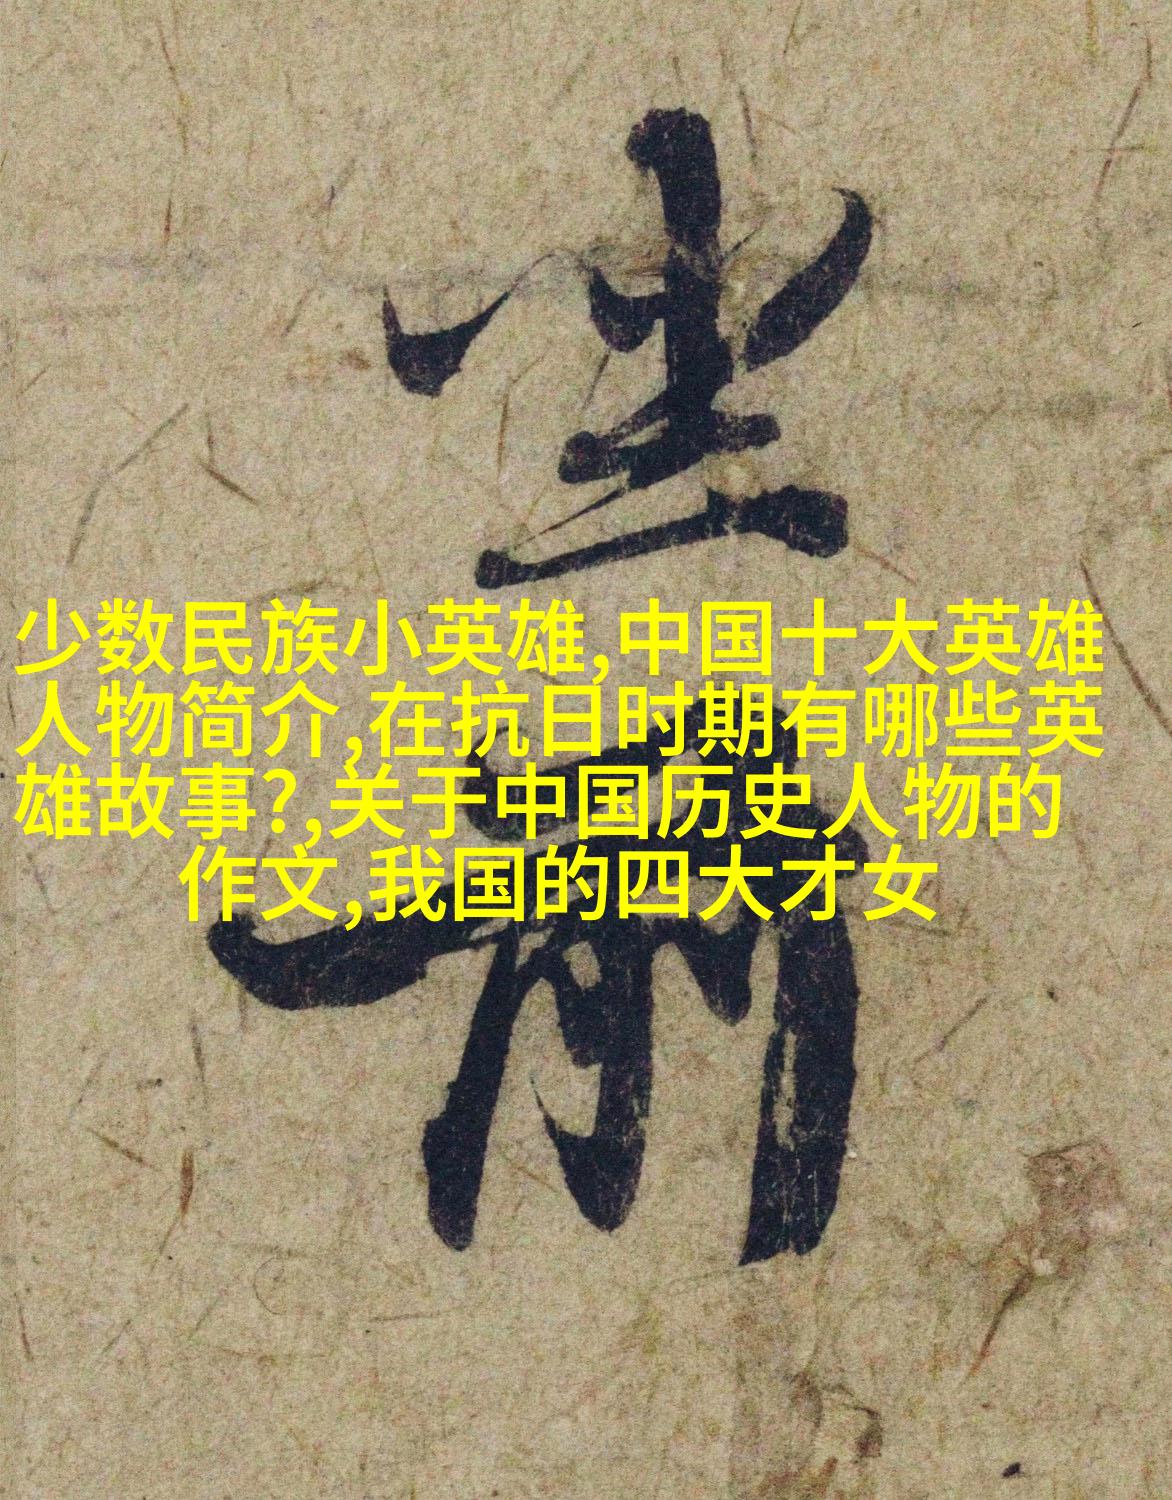 少数民族小英雄,中国十大英雄
人物简介,在抗日时期有哪些英
雄故事?,关于中国历史人物的
作文,我国的四大才女